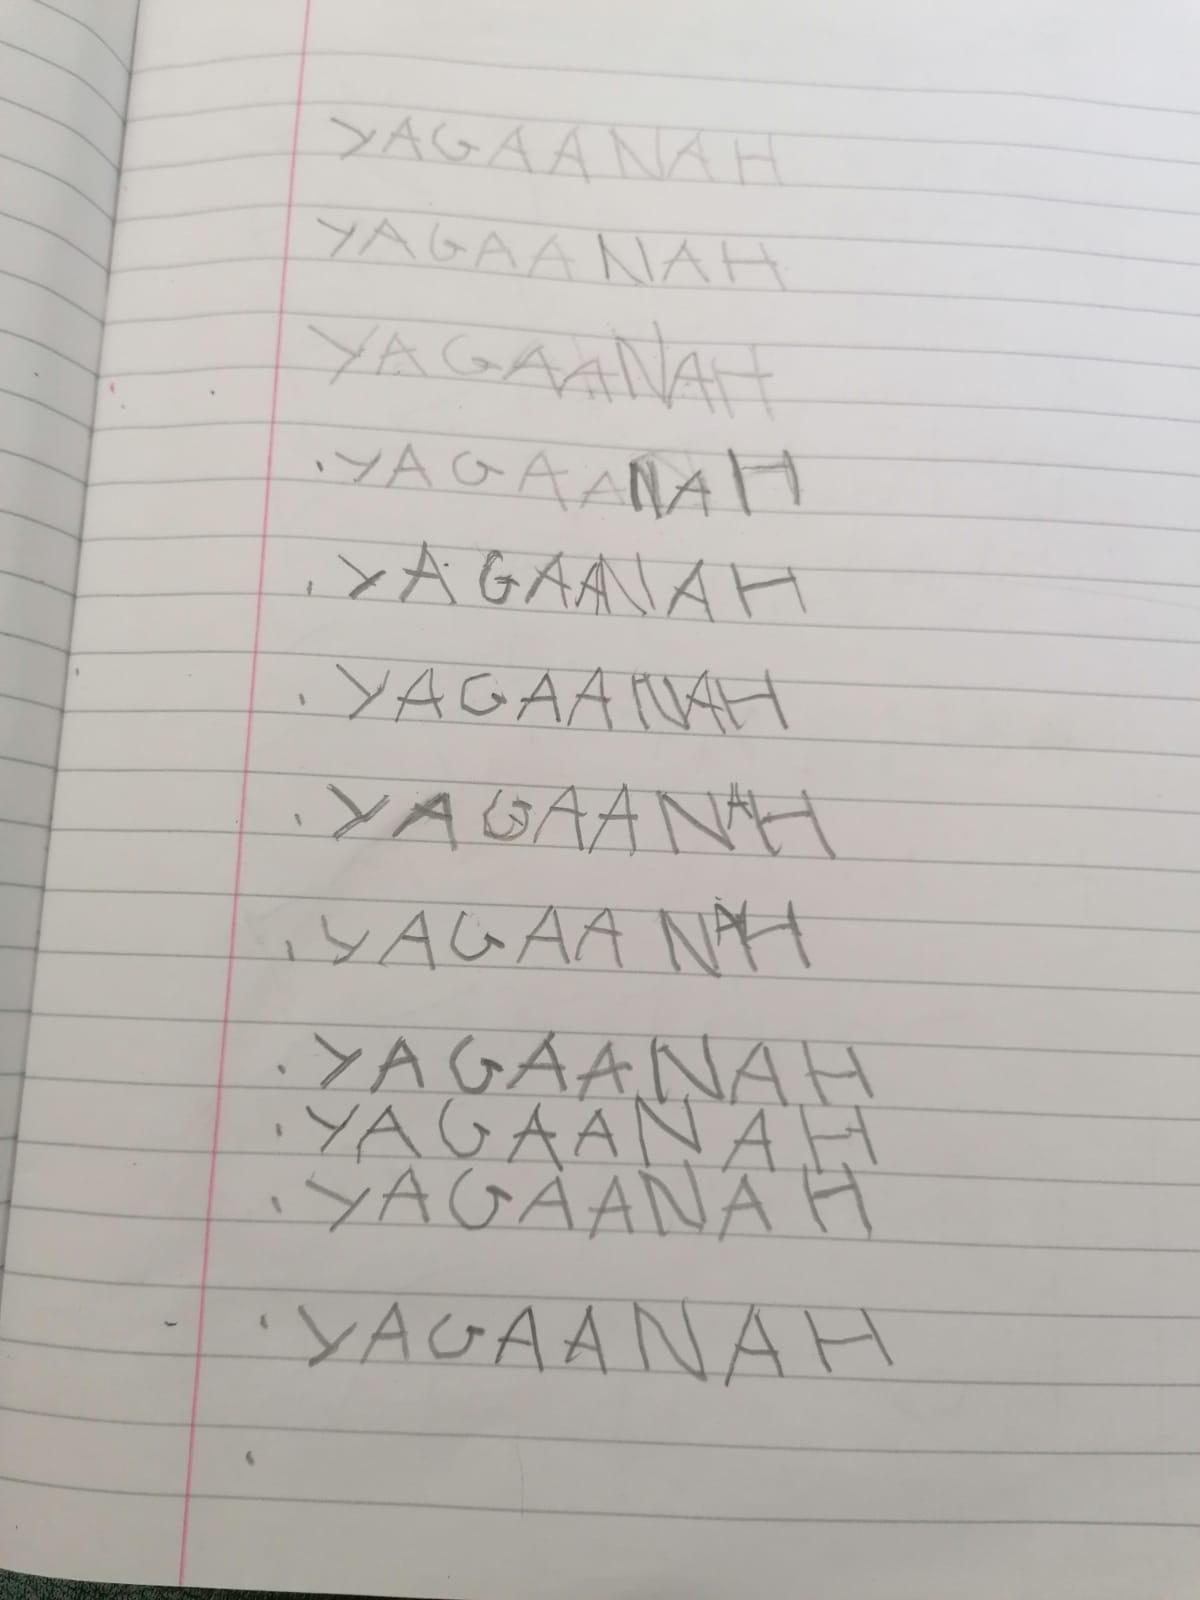 YAGAANAH
YAGAANAH
YAGAANAH
.YAGAANAH
.YAGAANAH
.YAGAANAH
.YAGAANAH
.YAGAANAH
.YAGAANAH
.YAGAANAH
.YAGAANAH
.YAGAANAH